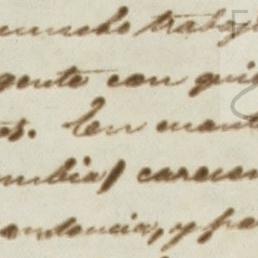 mucho trabajo
gente con qui
es. En cuant
mbia) carecen
ondencia, y pa